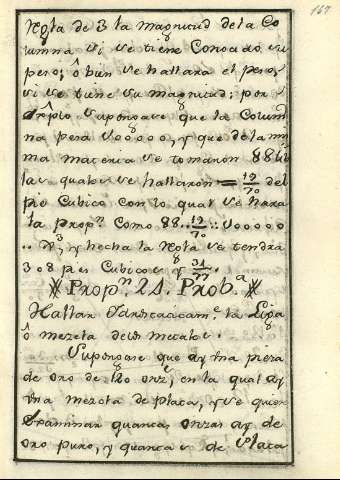 167
Regla de 3 la magnitud de la Co
lumna si se tiene Conocido su
peso; ô bien se hallara el peso,
si se tiene su magnitud: por
exêplo supongase que la Colum
na pesa 500000, y que de la mis
ma materia se tomaron 88 lib
las quales se hallaron = 19/70 del
pie Cubico con lo qual se hara
la propn. Como 88.. 19/70 :: 500000
y hecha la Regla se tendra
308 pies Cubicos y 31/77.
Propn. 21. Proba.
Hallar la Liga
ô mezcla de los metales.
Supongase que ay una pieza
de oro de 120 onzs, en la qual ay
una mezcla de plata, y se quiere
Examinar quantas onzas ay de
oro puro, y quantas de Plata